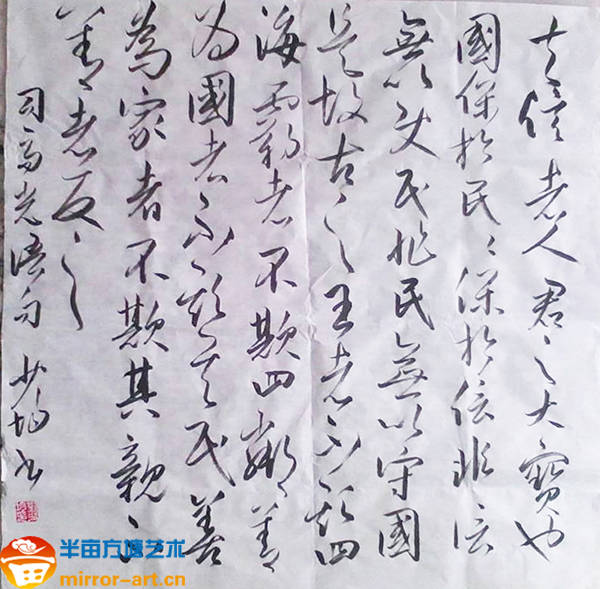 夫信者人君之大寶也
國保於民〻保於信非信
無以使民非民無以守國
是故古之王者不欺四
海霸者不欺四鄰善
为國者不欺其民善
為家者不欺其親不
善者反之
司马光语句 少 书
半亩方塘艺术
mirror-art.cn